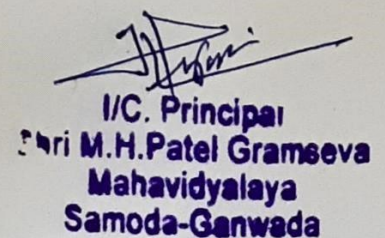 I/C. Principal
Shri M.H.Patel Gramseva
Mahavidyalaya
Samoda-Ganwada